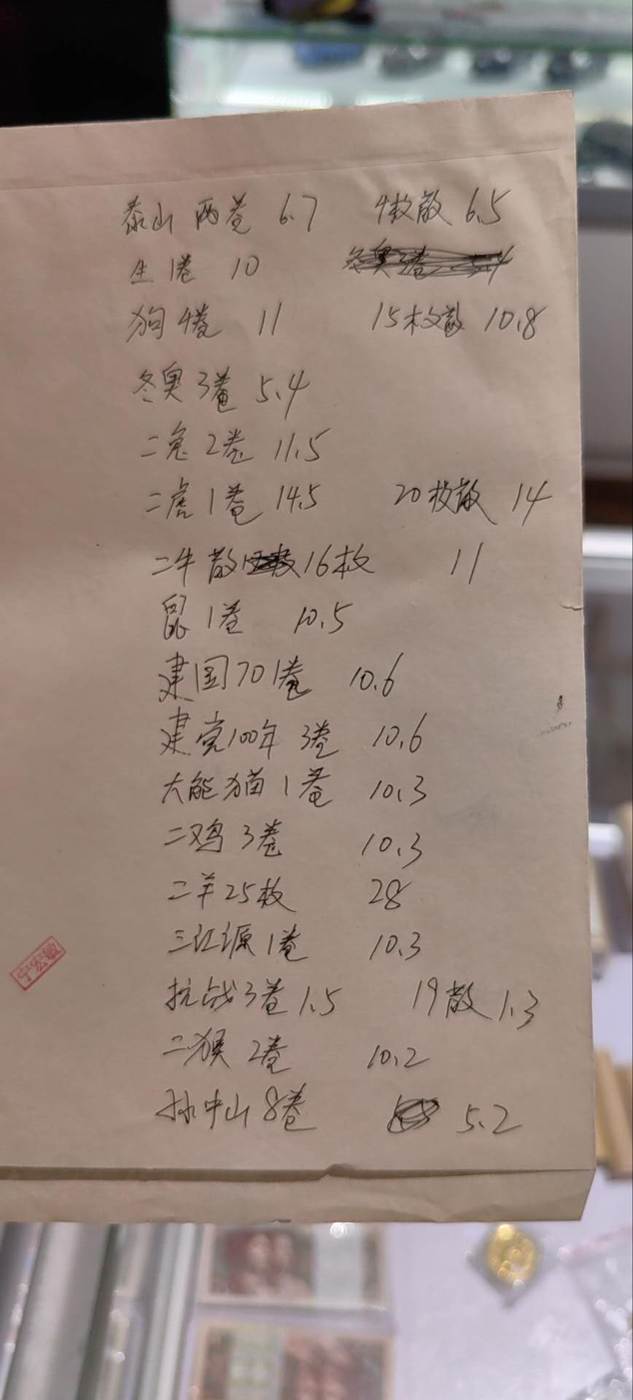 泰山 两卷 6.7 4枚散 6.5
生1卷 10
狗4卷 11 15枚散 10.8
冬奥3卷 5.4
二兔2卷 11.5
二虎1卷 14.5 20枚散 14
二牛散 16枚 11
鼠1卷 10.5
建国70 1卷 10.6
建党100年 3卷 10.6
大能猫1卷 10.3
二鸡3卷 10.3
二羊25枚 28
三江源1卷 10.3
抗战3卷 1.5 19散 1.3
二猴2卷 10.2
孙中山8卷 5.2